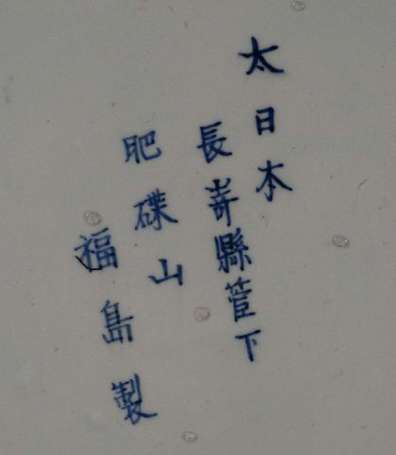 太日本
長嵜縣管下
肥碟山
福島製